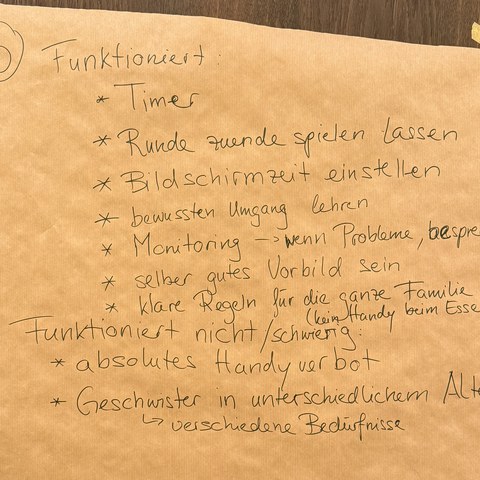 Funktioniert:
* Timer
* Runde zuende spielen lassen
* Bildschirmzeit einstellen
* bewussten Umgang lehren
* Monitoring → wenn Probleme, bespre
* selber gutes Vorbild sein
* klare Regeln für die ganze Familie
(kein Handy beim Esse
Funktioniert nicht/schwierig:
* absolutes Handyverbot
* Geschwister in unterschiedlichem Alte
↳ verschiedene Bedürfnisse